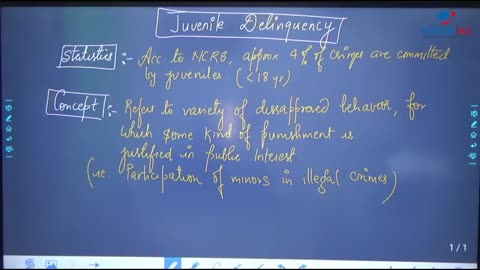 Juvenile Delinquency
Statistics :- Acc. to NCRB, approx 4% of crimes are committed
by juveniles (<18 yr)
Concept :- Refers to variety of dissapproved behavior, for
which some kind of punishment is
justified in public interest
(ie Participation of minors in illegal crimes)
1/1